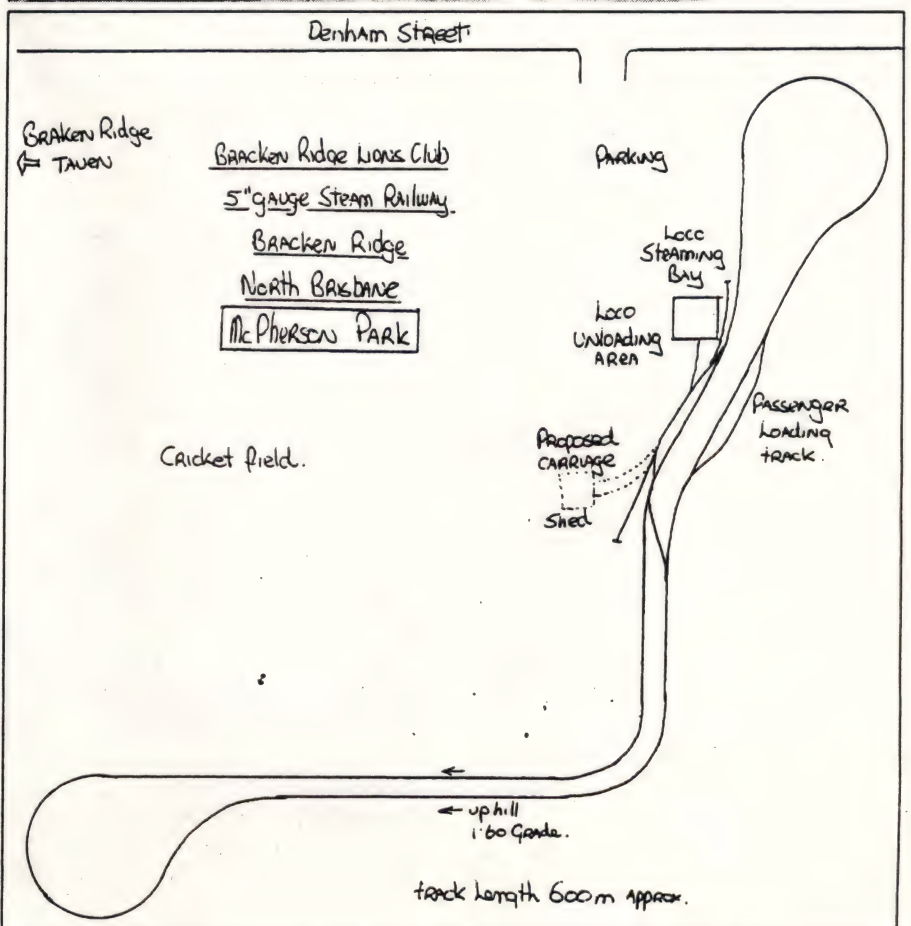 Denham Street
Braken Ridge
Taven
Bracken Ridge Lions Club
5" gauge Steam Railway
Bracken Ridge
North Brisbane
McPherson Park
Parking
Loco
Steaming
Bay
Loco
Unloading
Area
Passenger
Loading
track.
Proposed
Carriage
Shed
Cricket field.
uphill
1:60 Grade.
track Length 600m Approx.